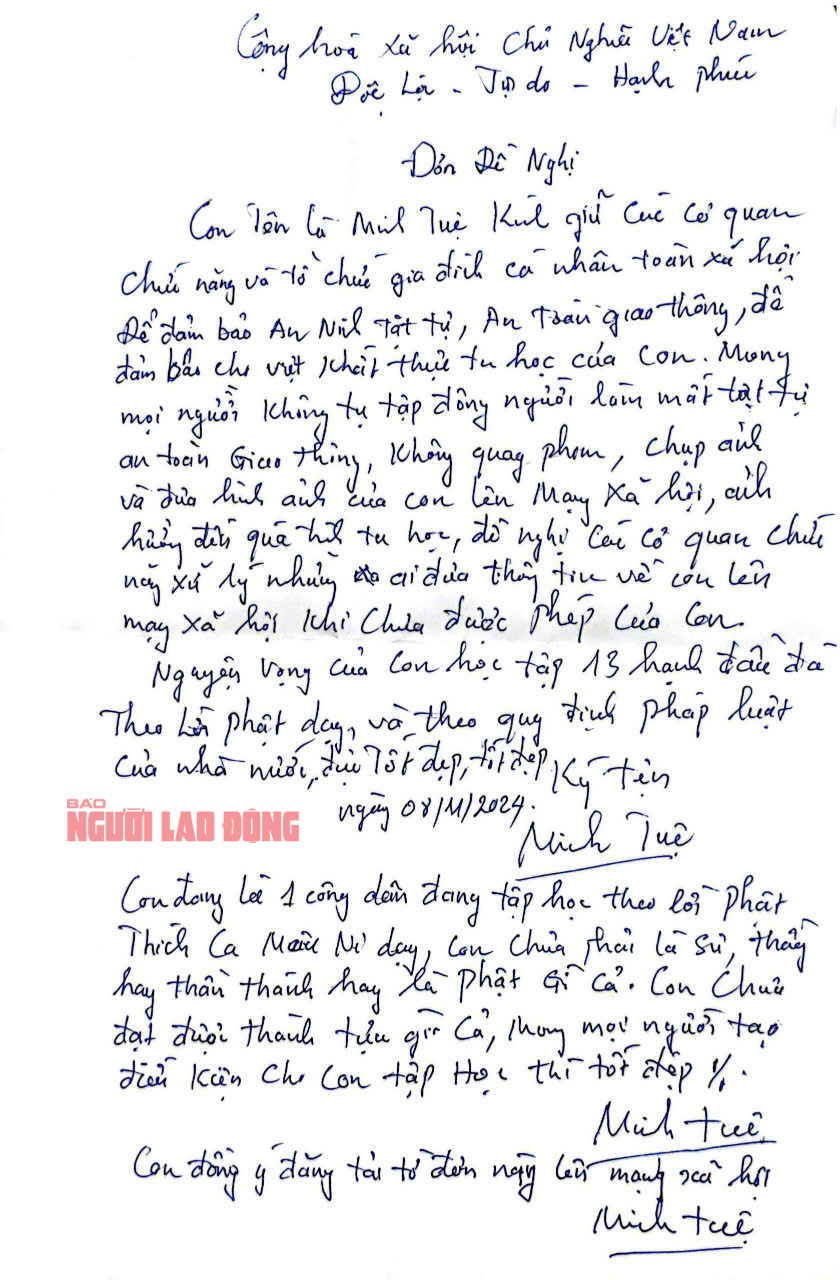 Cộng hoà xã hội Chủ Nghĩa Việt Nam
Độc Lập - Tự do - Hạnh phúc
Đơn Đề Nghị
Con Tên là Minh Tuệ Kính gửi Các Cơ quan
Chức năng và tổ chức gia đình cá nhân toàn xã hội
Để đảm bảo An Ninh Tật tự, An Toàn giao thông, để
đảm bảo cho việc Khất thực tu học của Con. Mong
mọi người Không tụ tập đông người làm mất tật tự
an toàn Giao thông, Không quay phim, chụp ảnh
và đưa hình ảnh của con lên Mạng Xã hội, ảnh
hưởng đến quá trình tu học, đề nghị Các Cơ quan chức
năng xử lý những ai đưa thông tin về con lên
mạng xã hội Khi Chưa được phép Của Con.
Nguyện Vọng Của Con học tập 13 hạnh đầu đà
Theo Lời Phật dạy, và theo quy định pháp luật
Của nhà nước, được Tốt đẹp, tốt đẹp
Ký tên
ngày 08/11/2024.
BÁO
NGƯỜI LAO ĐỘNG
Minh Tuệ
Con đang là 1 công dân đang tập học theo lời phật
Thích Ca Mâu Ni dạy, con Chưa phải là Sư, thầy
hay thần thánh hay là Phật Gì Cả. Con Chưa
đạt được thành tựu gì Cả, Mong mọi người tạo
điều Kiện Cho Con tập Học thì tốt đẹp ./.
Minh tuệ
Con đồng ý đăng tải tờ đơn này lên mạng xã hội
Minh tuệ